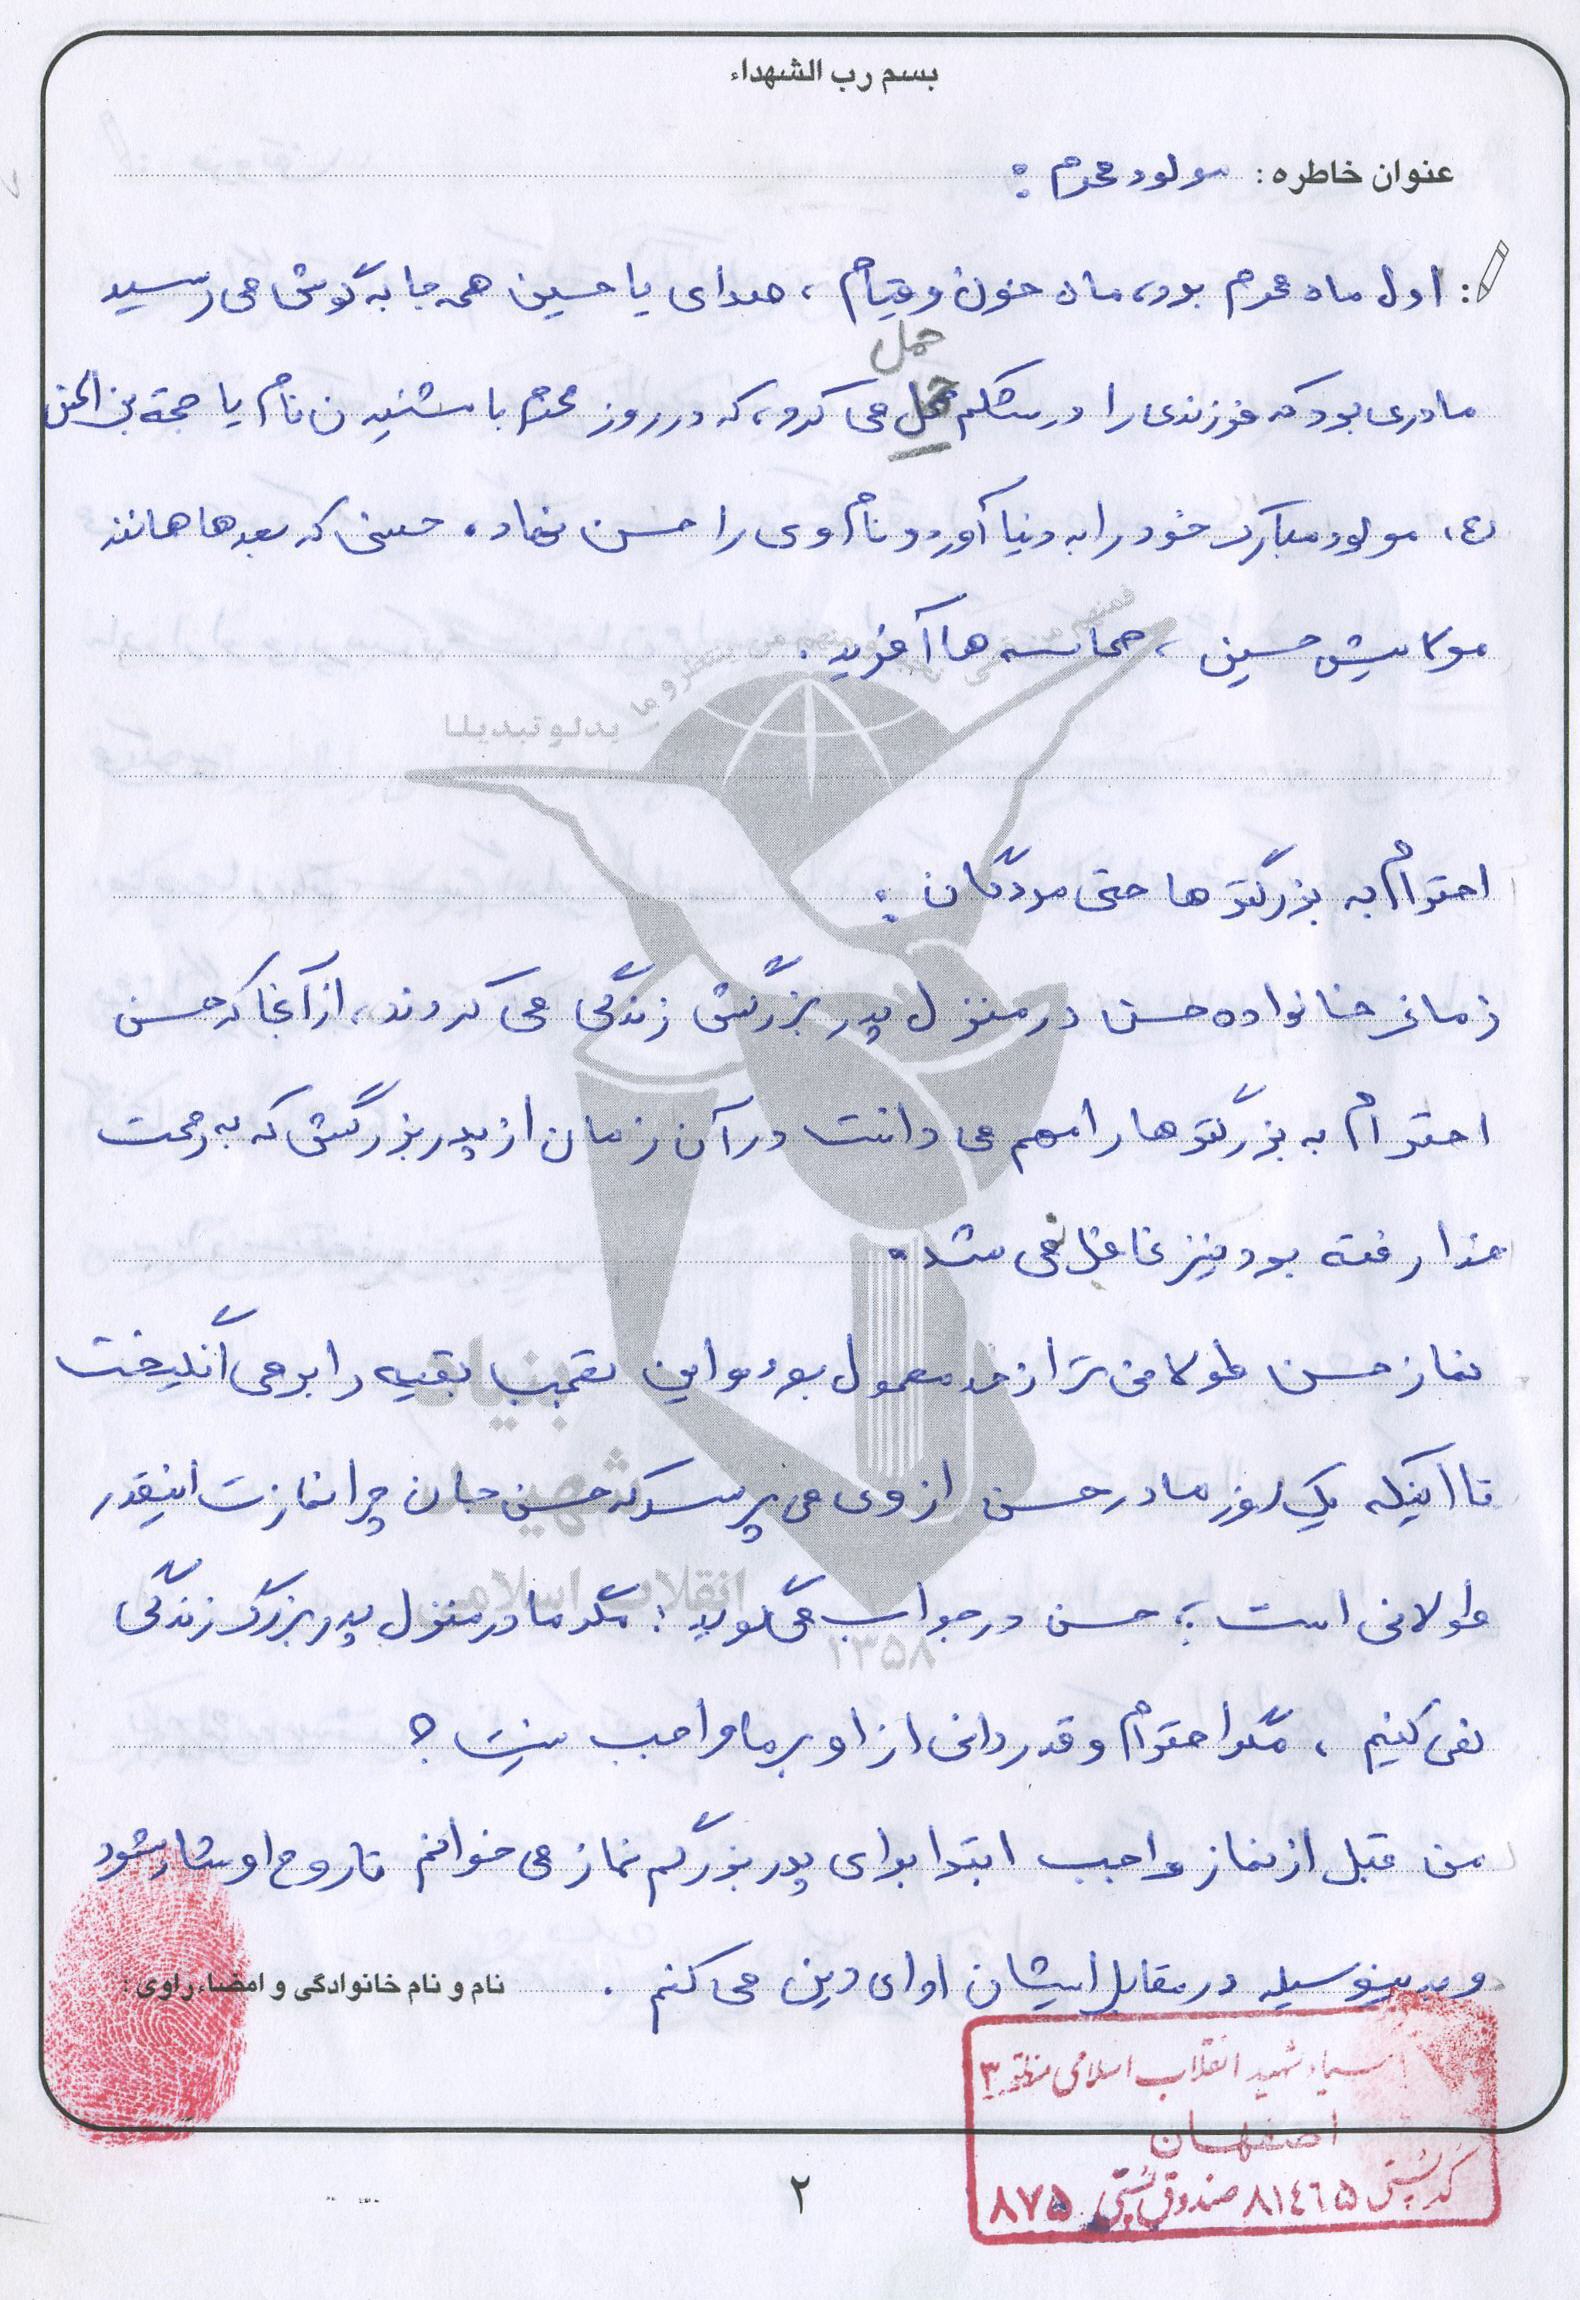 بسم رب الشهداء
عنوان خاطره : مولود محرم :
: اول ماه محرم بود، ماه خون و قیام ، صدای یا حسین همه جا به گوش می رسید
حمل
مادری بود که فرزندی را در شکم حمل می کرد، که در روز محرم با شنیدن نام یا حجة بن الحسن
(ع) مولود مبارک خود را به دنیا آورد و نام او را حسن نهاد. حسنی که بعدها همانند
مولایش حسین ، حماسه ها آفرید .
بدلو تبدیلا
احترام به بزرگترها حتی مردگان :
زمانی خانواده حسن در منزل پدر بزرگش زندگی می کردند، از آنجا که حسن
احترام به بزرگترها را مهم می دانست در آن زمان از پدربزرگش که به رحمت
خدا رفته بود نیز غافل نمی شد.
نماز حسن طولانی تر از حد معمول بود و این تعجب بقیه را برمی انگیخت
تا اینکه یک روز مادر حسن از وی می پرسد که حسن جان چرا نمازت اینقدر
طولانی است ؟ حسن در جواب می گوید : مگر ما در منزل پدربزرگ زندگی
نمی کنیم ، مگر احترام و قدردانی از او بر ما واجب نیست ؟
من قبل از نماز واجب ابتدا برای پدر بزرگم نماز می خوانم تا روح او شاد شود
و بدینوسیله در مقابل ایشان ادای دین می کنم .
نام و نام خانوادگی و امضاء راوی :
بنیاد
شهید
انقلاب اسلامی
۱۳۵۸
بنیاد شهید انقلاب اسلامی منطقه ۳
اصفهان
کد پستی ۸۱۴۶۵ صندوق پستی ۸۷۵
۲